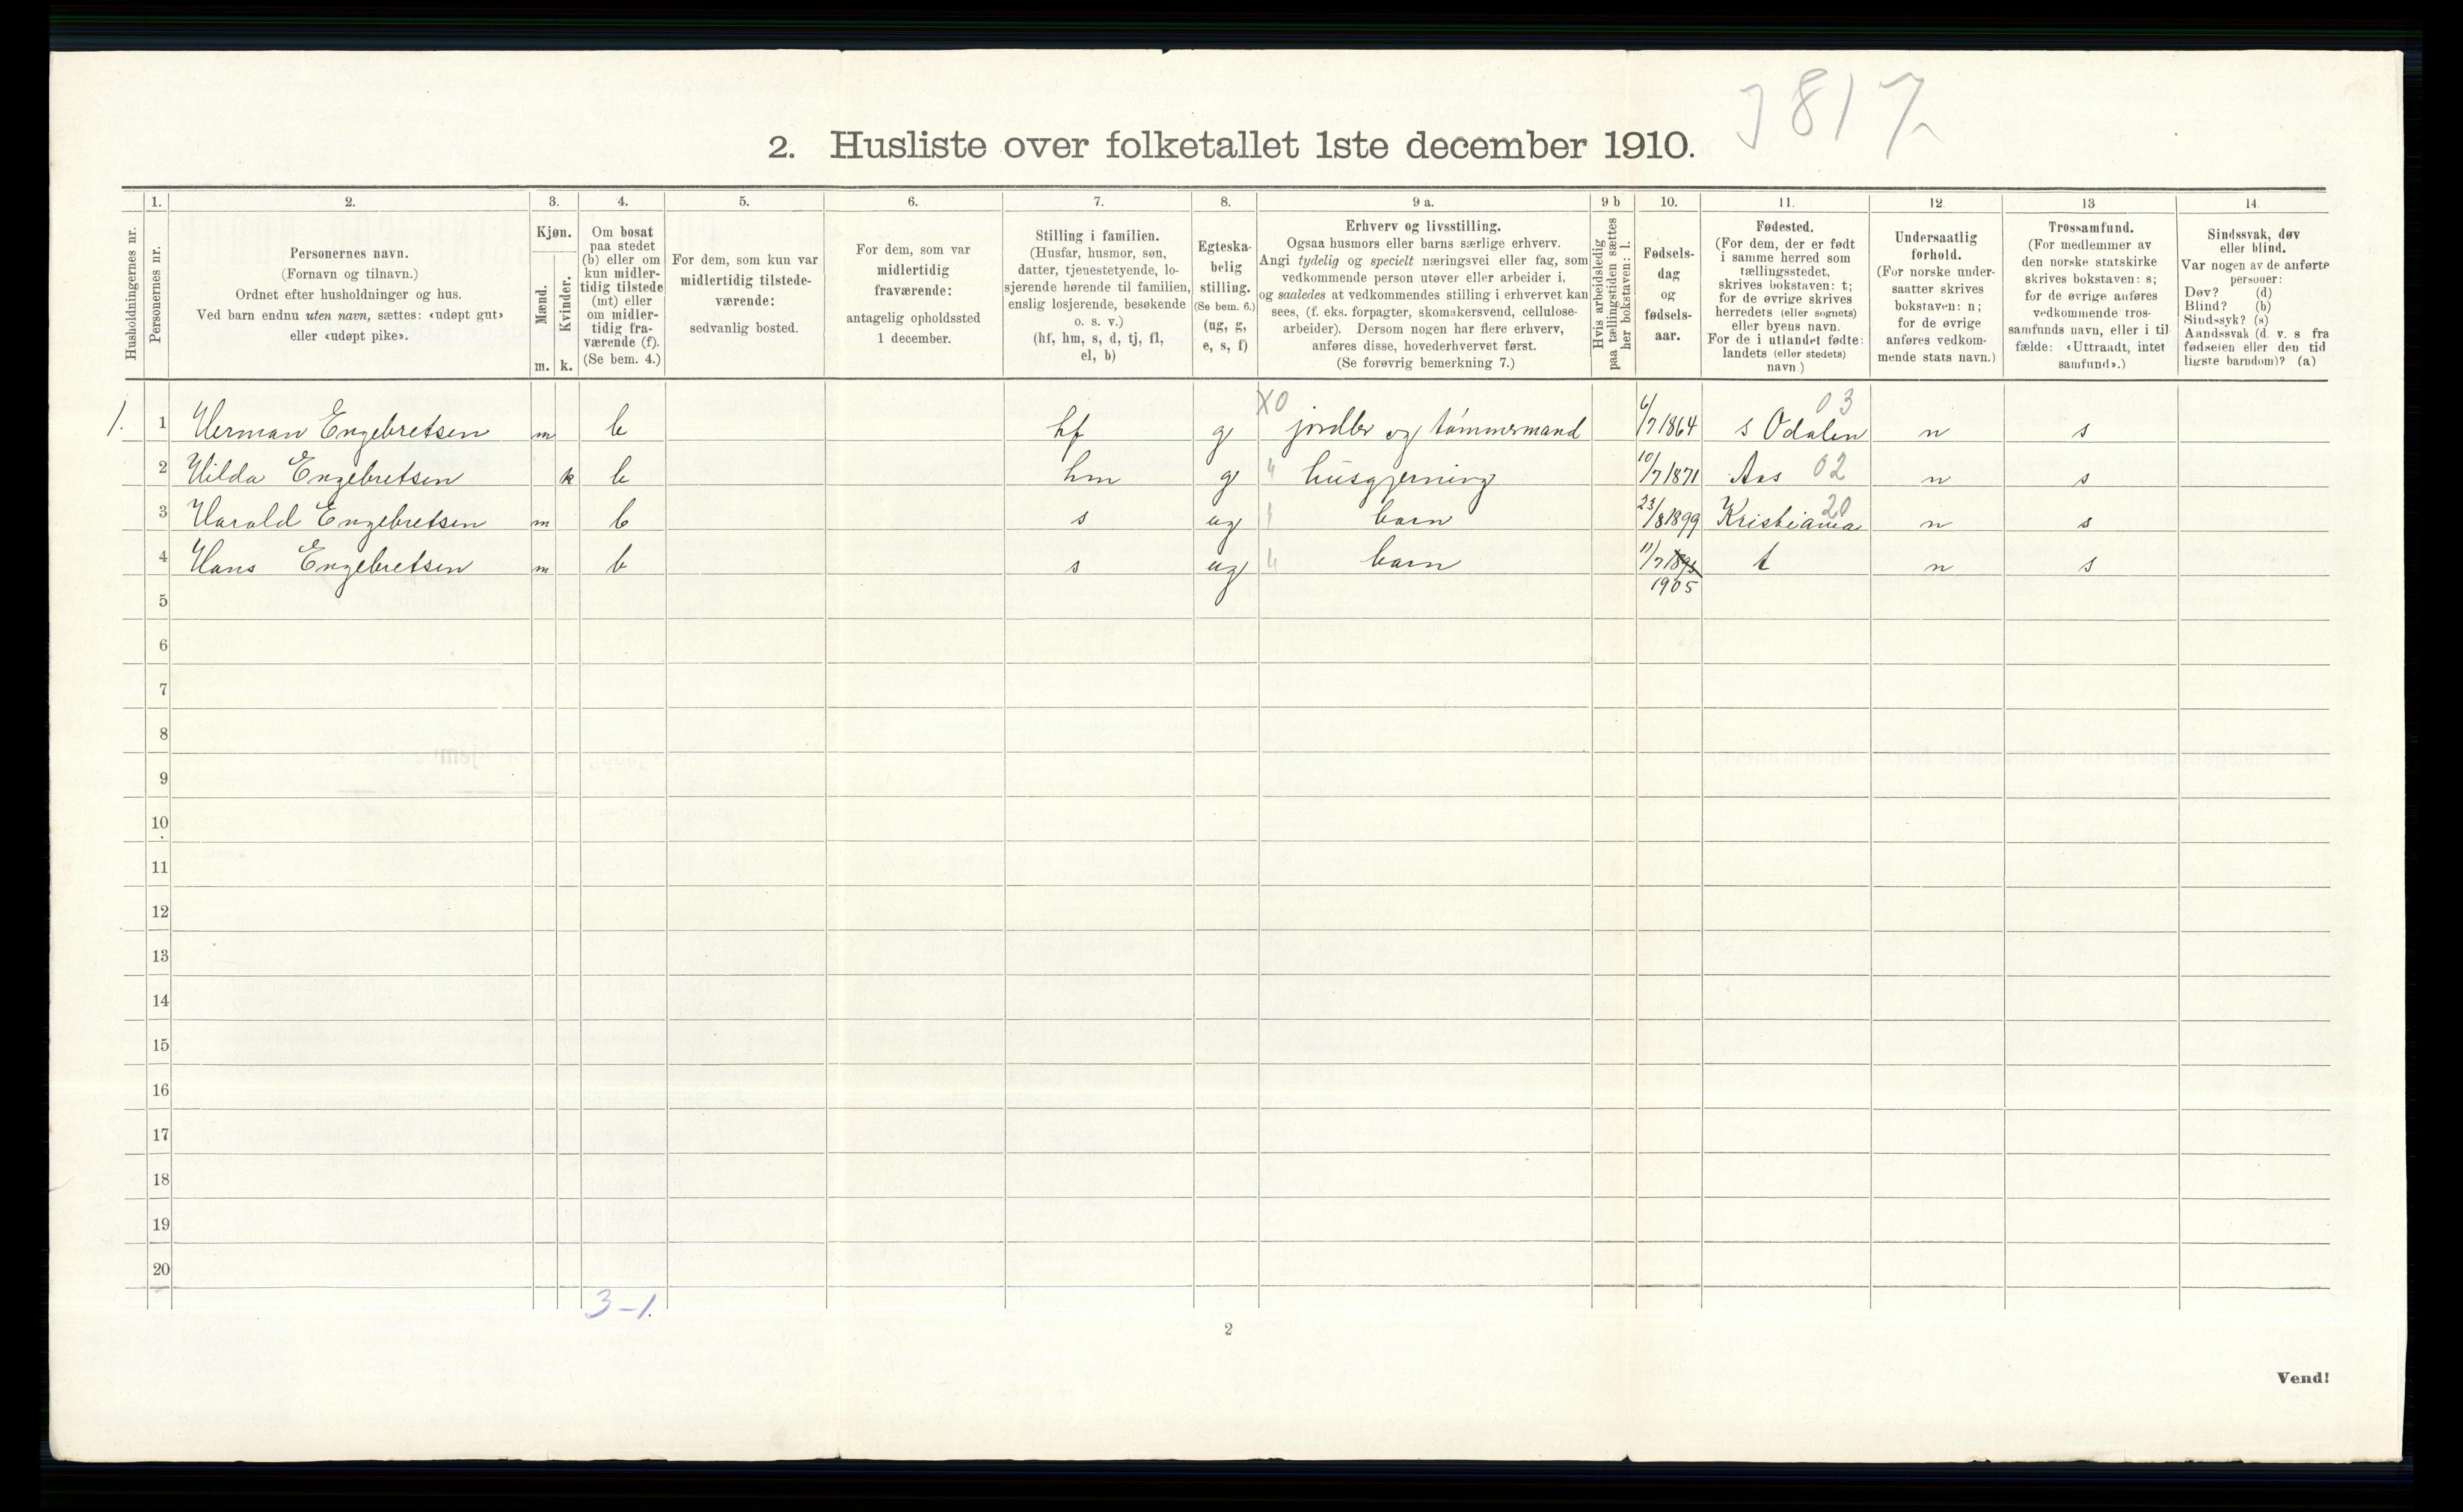 J 817
2. Husliste over folketallet 1ste december 1910.
Husholdningernes nr.
1. Personernes nr.
2. Personernes navn.
(Fornavn og tilnavn.)
Ordnet efter husholdninger og hus.
Ved barn endnu uten navn, sættes: «udøpt gut»
eller «udøpt pike».
3. Kjøn.
Mænd. Kvinder.
m. k.
4. Om bosat
paa stedet
(b) eller om
kun midler-
tidig tilstede
(mt) eller
om midler-
tidig fra-
værende (f).
(Se bem. 4.)
5. For dem, som kun var
midlertidig tilstede-
værende:
sedvanlig bosted.
6. For dem, som var
midlertidig
fraværende:
antagelig opholdssted
1 december.
7. Stilling i familien.
(Husfar, husmor, søn,
datter, tjenestetyende, lo-
sjerende hørende til familien,
enslig losjerende, besøkende
o. s. v.)
(hf, hm, s, d, tj, fl,
el, b)
8. Egteska-
belig
stilling.
(Se bem. 6.)
(ug, g,
e, s, f)
9 a. Erhverv og livsstilling.
Ogsaa husmors eller barns særlige erhverv.
Angi tydelig og specielt næringsvei eller fag, som
vedkommende person utøver eller arbeider i,
og saaledes at vedkommendes stilling i erhvervet kan
sees, (f. eks. forpagter, skomakersvend, cellulose-
arbeider). Dersom nogen har flere erhverv,
anføres disse, hovederhvervet først.
(Se forøvrig bemerkning 7.)
9 b Hvis arbeidsledig
paa tællingstiden sættes
her bokstaven: l.
10. Fødsels-
dag
og
fødsels-
aar.
11. Fødested.
(For dem, der er født
i samme herred som
tællingsstedet,
skrives bokstaven: t;
for de øvrige skrives
herredets (eller sognets)
eller byens navn.
For de i utlandet fødte:
landets (eller stedets)
navn.)
12 Undersaatlig
forhold.
(For norske under-
saatter skrives
bokstaven: n;
for de øvrige
anføres vedkom-
mende stats navn.)
13 Trossamfund.
(For medlemmer av
den norske statskirke
skrives bokstaven: s;
for de øvrige anføres
vedkommende tros-
samfunds navn, eller i til
fælde: «Uttraadt, intet
samfund».)
14 Sindssvak, døv
eller blind.
Var nogen av de anførte
personer:
Døv? (d)
Blind? (b)
Sindssyk? (s)
Aandssvak (d. v. s fra
fødselen eller den tid
ligste barndom)? (a)
X0 03
1. 1 Herman Engebretsen m b hf g jordbr og tømmermand 6/7 1864 s Odalen n s
2 Hilda Engebretsen k b hm g " husgjerning 10/7 1871 Aas 02 n s
3 Harald Engebretsen m b s ug " barn 23/8 1899 Kristiania 20 n s
4 Hans Engebretsen m b s ug " barn 11/7 1895 t n s
5 1905
6
7
8
9
10
11
12
13
14
15
16
17
18
19
20
3-1.
2
Vend!